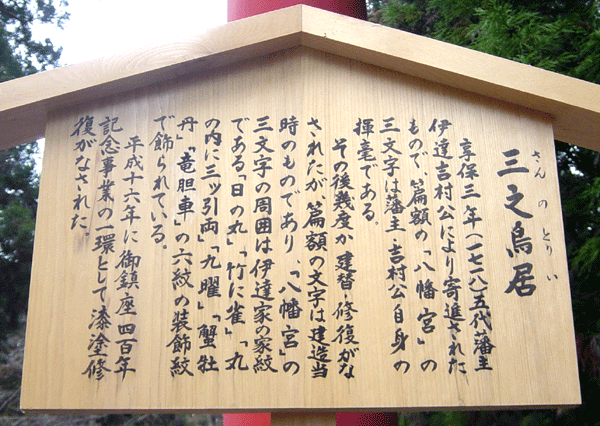 さんのとりい
三之鳥居
享保三年（一七一八）五代藩主
伊達吉村公により寄進された
もので、篇額の「八幡宮」の
三文字は藩主・吉村公自身の
揮毫である。
その後幾度か建替・修復がな
されたが、篇額の文字は建造当
時のものであり、「八幡宮」の
三文字の周囲は伊達家の家紋
である「日の丸」「竹に雀」「丸
の内に三ッ引両」「九曜」「蟹牡
丹」「竜胆車」の六紋の装飾紋
で飾られている。
平成十六年に御鎮座四百年
記念事業の一環として漆塗修
復がなされた。